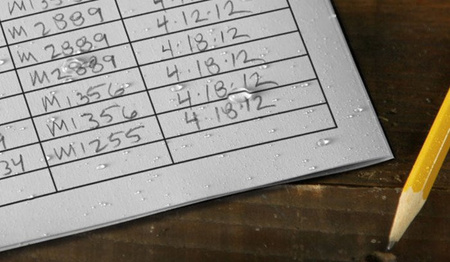 M2889
M2889 4·12·12
M2889 4·18·12
M1356 4·18·12
M1356 4·18·12
34 M1255 4·18·12